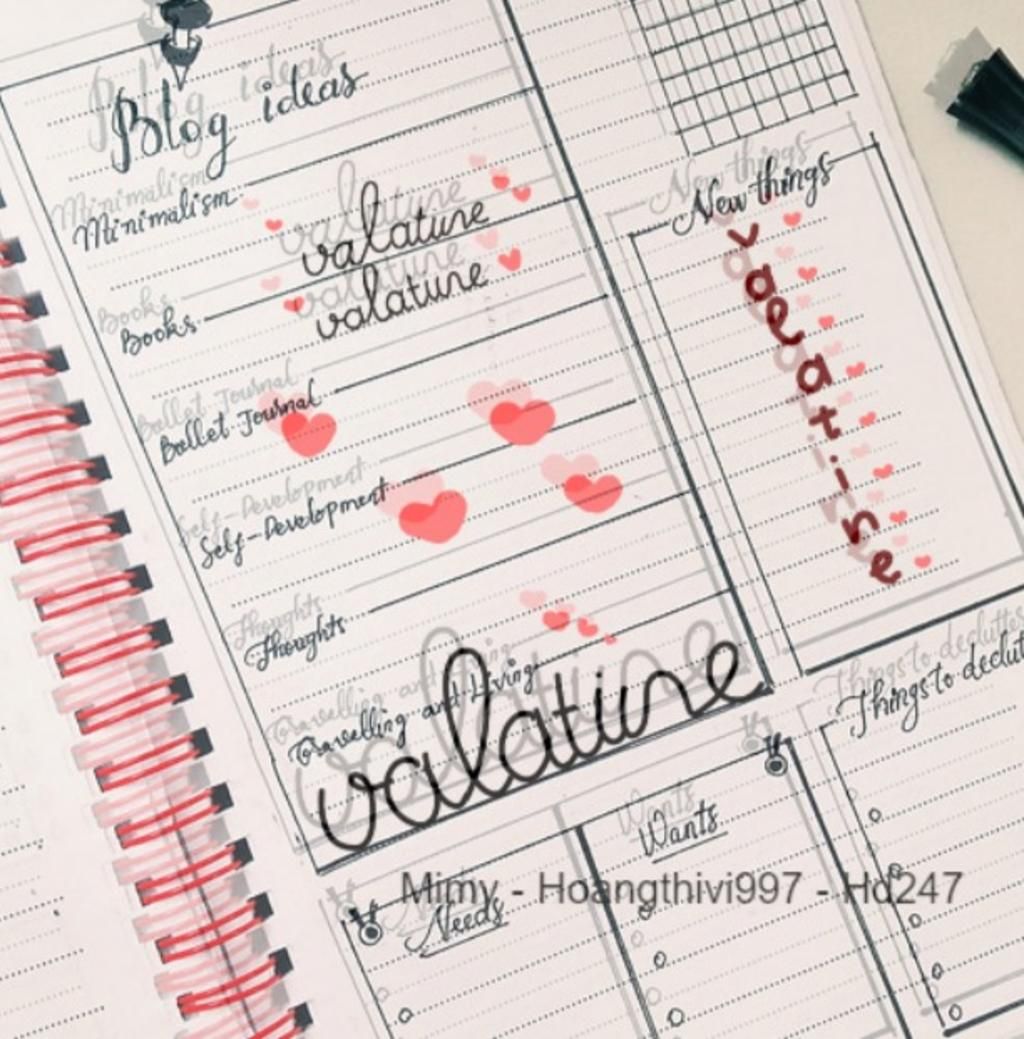 Blog ideas
Minimalism
valatine
valatine
Books
Bullet Journal
Self-Development
Thoughts
Travelling and Living
valatine
New things
valatine
Things to declut
Wants
Needs
Mimy - Hoangthivi997 - Hd247